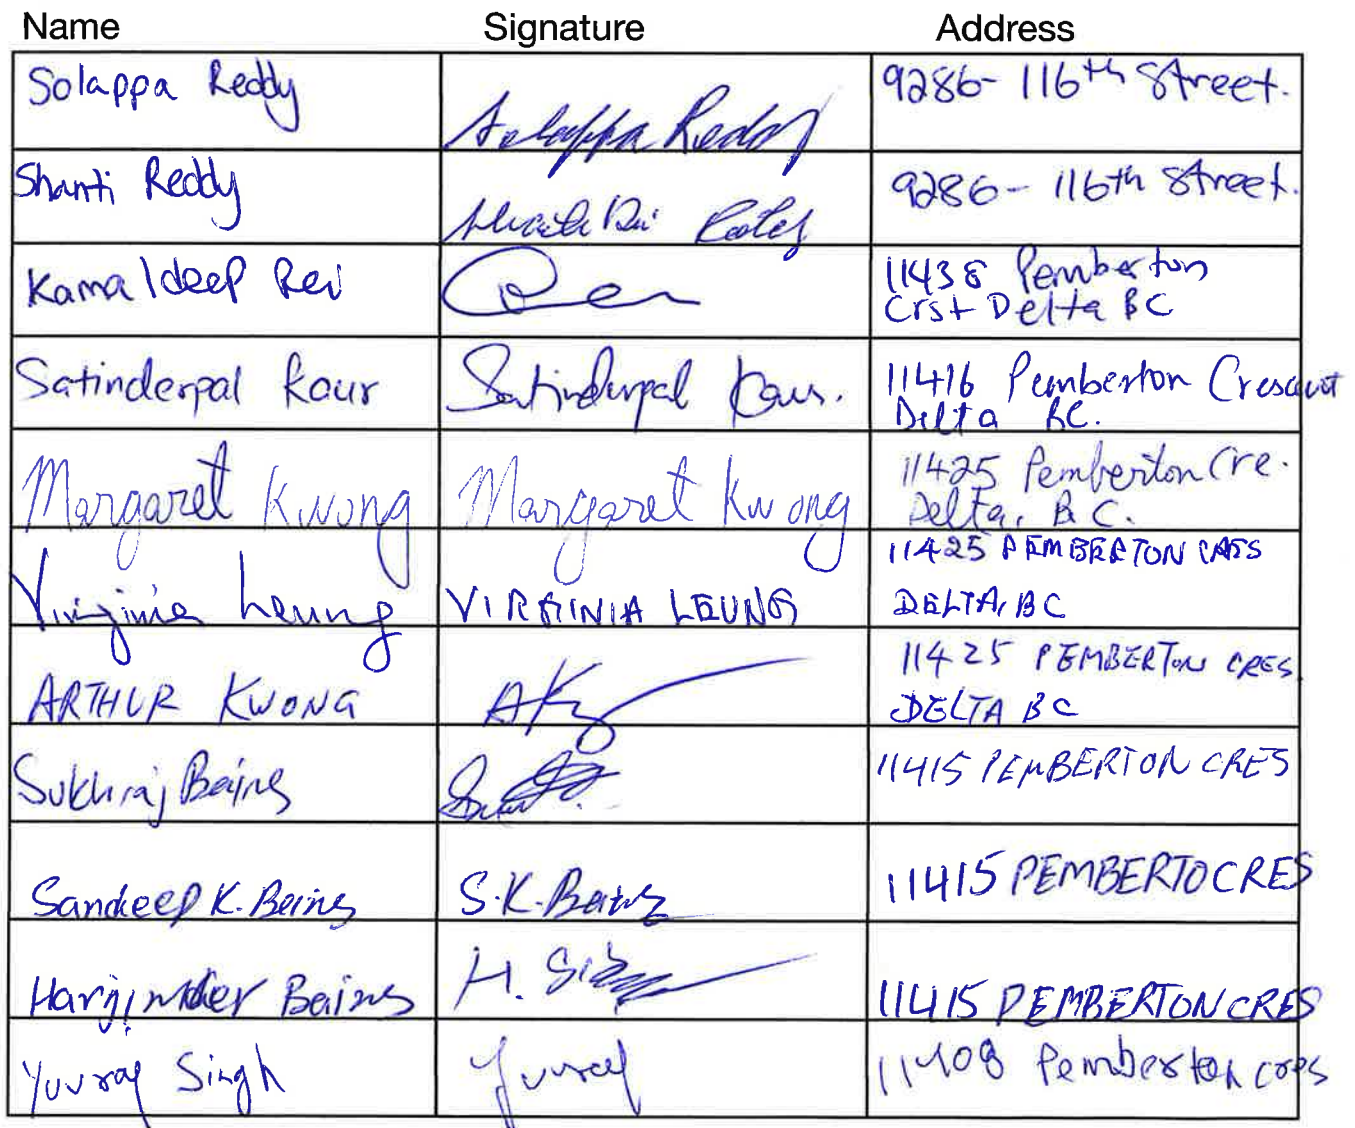 Name Signature Address
Solappa Reddy Solappa Reddy 9286- 116th Street.
Shanti Reddy Reddy 9286- 116th Street.
Kamaldeep Rai 11438 Pemberton
Crst Delta BC
Satinderpal Kaur Satinderpal Kaur. 11416 Pemberton Crescent
Delta BC.
Margaret Kwong Margaret Kwong 11425 Pemberton Cre.
Delta, B C.
11425 PEMBERTON CRES
Virginia Leung VIRGINIA LEUNG DELTA, BC
11425 PEMBERTON CRES
ARTHUR KWONG AK DELTA BC
Sukhraj Bains 11415 PEMBERTON CRES
Sandeep K. Bains S.K. Bains 11415 PEMBERTO CRES
Harjinder Bains H. 11415 PEMBERTON CRES
Yuvraj Singh Yuvraj 11408 Pemberton cres